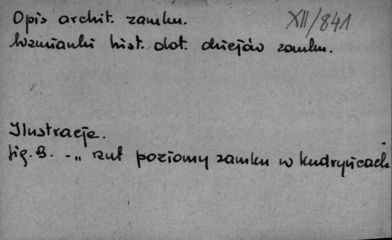 Opis archit. zamku. XII/841
Wzmianki hist. dot. dziejów zamku.
Ilustracje.
fig. 3. -„ rzut poziomy zamku w Kudryńcach